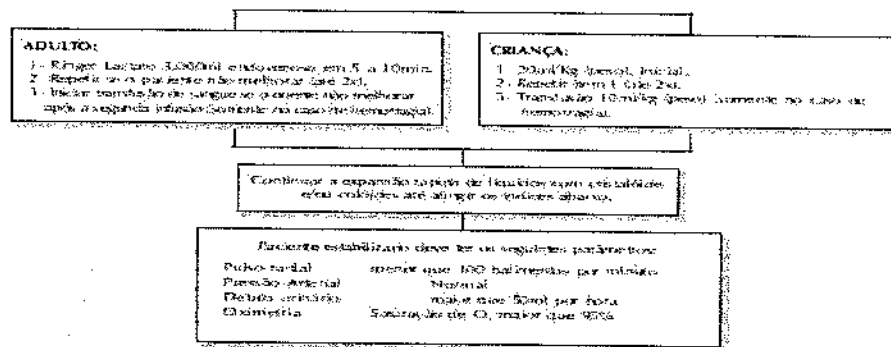 ADULTO:
1 - Ringer Lactato endovenoso em 5 a 10min.
2 - Repetir se o paciente não melhorar (até 2x).
3 - Iniciar transfusão de sangue se o paciente não melhorar
após a segunda infusão (somente no caso de hemorragia).
CRIANÇA:
1 - 20ml/Kg (peso), inicial.
2 - Repetir item 1 (até 2x).
3 - Transfusão 10ml/kg (peso) (somente no caso de
hemorragia).
Continuar a expansão rápida de líquidos com cristalóides
e/ou colóides até atingir os índices abaixo.
Paciente estabilizado deve ter os seguintes parâmetros:
Pulso radial menor que 100 batimentos por minuto
Pressão Arterial Normal
Débito urinário maior que 50ml por hora
Oximetria Saturação de O₂ maior que 95%